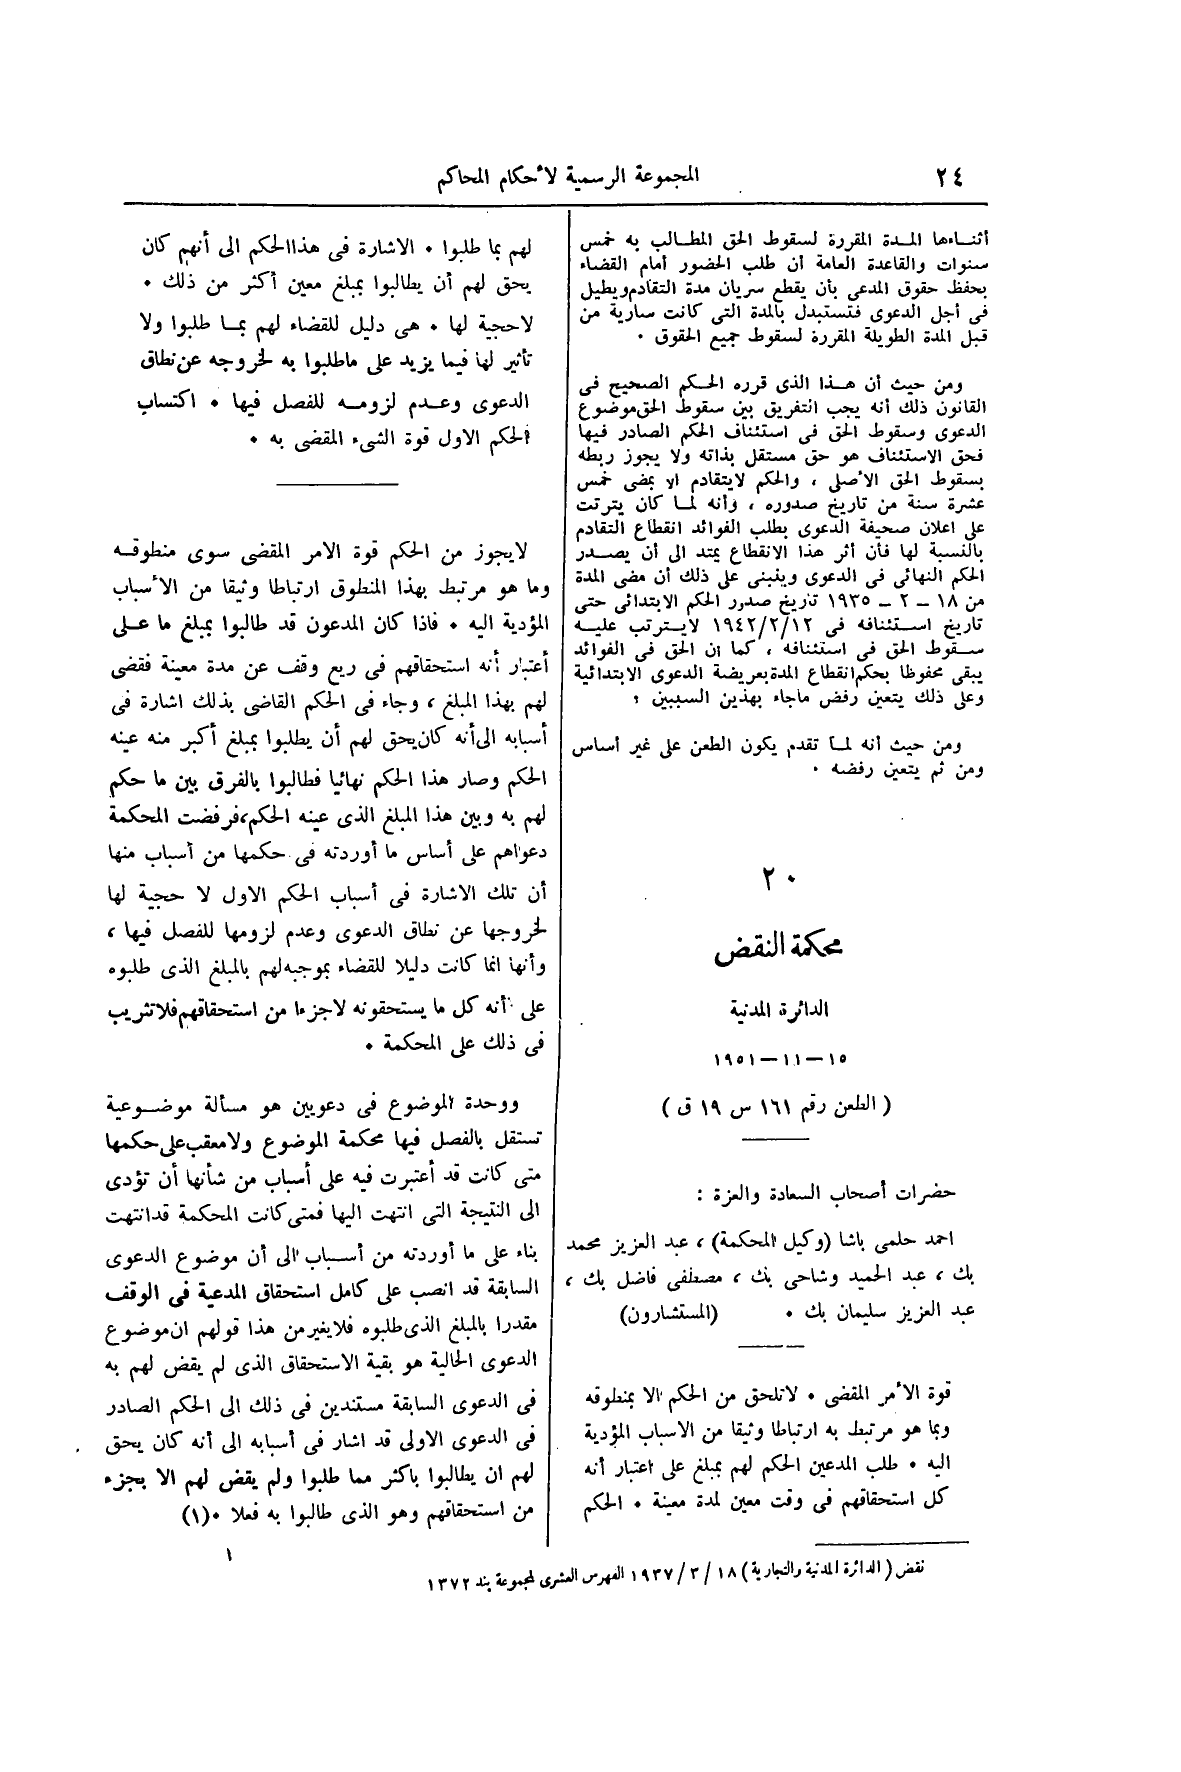 ٢٤
المجموعة الرسمية لأحكام المحاكم
أثناءها المدة المقررة لسقوط الحق المطالب به خمس
سنوات والقاعدة العامة أن طلب الحضور أمام القضاء
بحفظ حقوق المدعى بأن يقطع سريان مدة التقادم ويطيل
فى أجل الدعوى فتستبدل بالمدة التى كانت سارية من
قبل المدة الطويلة المقررة لسقوط جميع الحقوق ٠
ومن حيث أن هذا الذى قرره الحكم الصحيح فى
القانون ذلك أنه يجب التفريق بين سقوط الحق موضوع
الدعوى وسقوط الحق فى استئناف الحكم الصادر فيها
فحق الاستئناف هو حق مستقل بذاته ولا يجوز ربطه
بسقوط الحق الأصلى ، والحكم لايتقادم الا بمضى خمس
عشرة سنة من تاريخ صدوره ، وأنه لما كان يترتت
على اعلان صحيفة الدعوى بطلب الفوائد انقطاع التقادم
بالنسبة لها فأن أثر هذا الانقطاع يمتد الى أن يصدر
الحكم النهائى فى الدعوى وينبنى على ذلك أن مضى المدة
من ١٨ - ٢ - ١٩٣٥ تاريخ صدور الحكم الابتدائى حتى
تاريخ استئنافه فى ١٩٤٢/٢/١٢ لايترتب عليه
سقوط الحق فى استئنافه ، كما ان الحق فى الفوائد
يبقى محفوظا بحكم انقطاع المدة بعريضة الدعوى الابتدائية
وعلى ذلك يتعين رفض ماجاء بهذين السببين ؟
ومن حيث أنه لما تقدم يكون الطعن على غير أساس
ومن ثم يتعين رفضه ٠
٢٠
محكمة النقض
الدائرة المدنية
١٥-١١-١٩٥١
( الطعن رقم ١٦١ س ١٩ ق )
حضرات أصحاب السعادة والعزة :
احمد حلمى باشا (وكيل المحكمة) ، عبد العزيز محمد
بك ، عبد الحميد وشاحى بك ، مصطفى فاضل بك ،
عبد العزيز سليمان بك ٠ (المستشارون)
قوة الأمر المقضى ٠ لاتلحق من الحكم الا بمنطوقه
وبما هو مرتبط به ارتباطا وثيقا من الاسباب المؤدية
اليه ٠ طلب المدعين الحكم لهم بمبلغ على اعتبار أنه
كل استحقاقهم فى وقت معين لمدة معينة ٠ الحكم
لهم بما طلبوا ٠ الاشارة فى هذا الحكم الى أنهم كان
يحق لهم أن يطالبوا بمبلغ معين أكثر من ذلك ٠
لاحجية لها ٠ هى دليل للقضاء لهم بما طلبوا ولا
تأثير لها فيما يزيد على ماطلبوا به لخروجه عن نطاق
الدعوى وعدم لزومه للفصل فيها ٠ اكتساب
الحكم الاول قوة الشىء المقضى به ٠
لايجوز من الحكم قوة الامر المقضى سوى منطوقه
وما هو مرتبط بهذا المنطوق ارتباطا وثيقا من الأسباب
المؤدية اليه ٠ فاذا كان المدعون قد طالبوا بمبلغ ما على
أعتبار أنه استحقاقهم فى ريع وقف عن مدة معينة فقضى
لهم بهذا المبلغ ، وجاء فى الحكم القاضى بذلك اشارة فى
أسبابه الى أنه كان يحق لهم أن يطلبوا بمبلغ أكبر منه عينه
الحكم وصار هذا الحكم نهائيا فطالبوا بالفرق بين ما حكم
لهم به وبين هذا المبلغ الذى عينه الحكم،فرفضت المحكمة
دعواهم على أساس ما أوردته فى حكمها من أسباب منها
أن تلك الاشارة فى أسباب الحكم الاول لا حجية لها
لخروجها عن نطاق الدعوى وعدم لزومها للفصل فيها ،
وأنها انما كانت دليلا للقضاء بموجبه لهم بالمبلغ الذى طلبوه
على أنه كل ما يستحقونه لاجزءا من استحقاقهم فلاتثريب
فى ذلك على المحكمة ٠
ووحدة الموضوع فى دعويين هو مسألة موضوعية
تستقل بالفصل فيها محكمة الموضوع ولا معقب على حكمها
متى كانت قد أعتبرت فيه على أسباب من شأنها أن تؤدى
الى النتيجة التى انتهت اليها فمتى كانت المحكمة قد انتهت
بناء على ما أوردته من أسباب الى أن موضوع الدعوى
السابقة قد انصب على كامل استحقاق المدعية فى الوقف
مقدرا بالمبلغ الذى طلبوه فلايغير من هذا قولهم ان موضوع
الدعوى الحالية هو بقية الاستحقاق الذى لم يقض لهم به
فى الدعوى السابقة مستندين فى ذلك الى الحكم الصادر
فى الدعوى الاولى قد اشار فى أسبابه الى أنه كان يحق
لهم ان يطالبوا باكثر مما طلبوا ولم يقض لهم الا بجزء
من استحقاقهم وهو الذى طالبوا به فعلا ٠(١)
١
نقض ( الدائرة المدنية والتجارية ) ١٨ / ٣ / ١٩٣٧ الفهرس العشرى لمجموعة بند ١٣٧٢